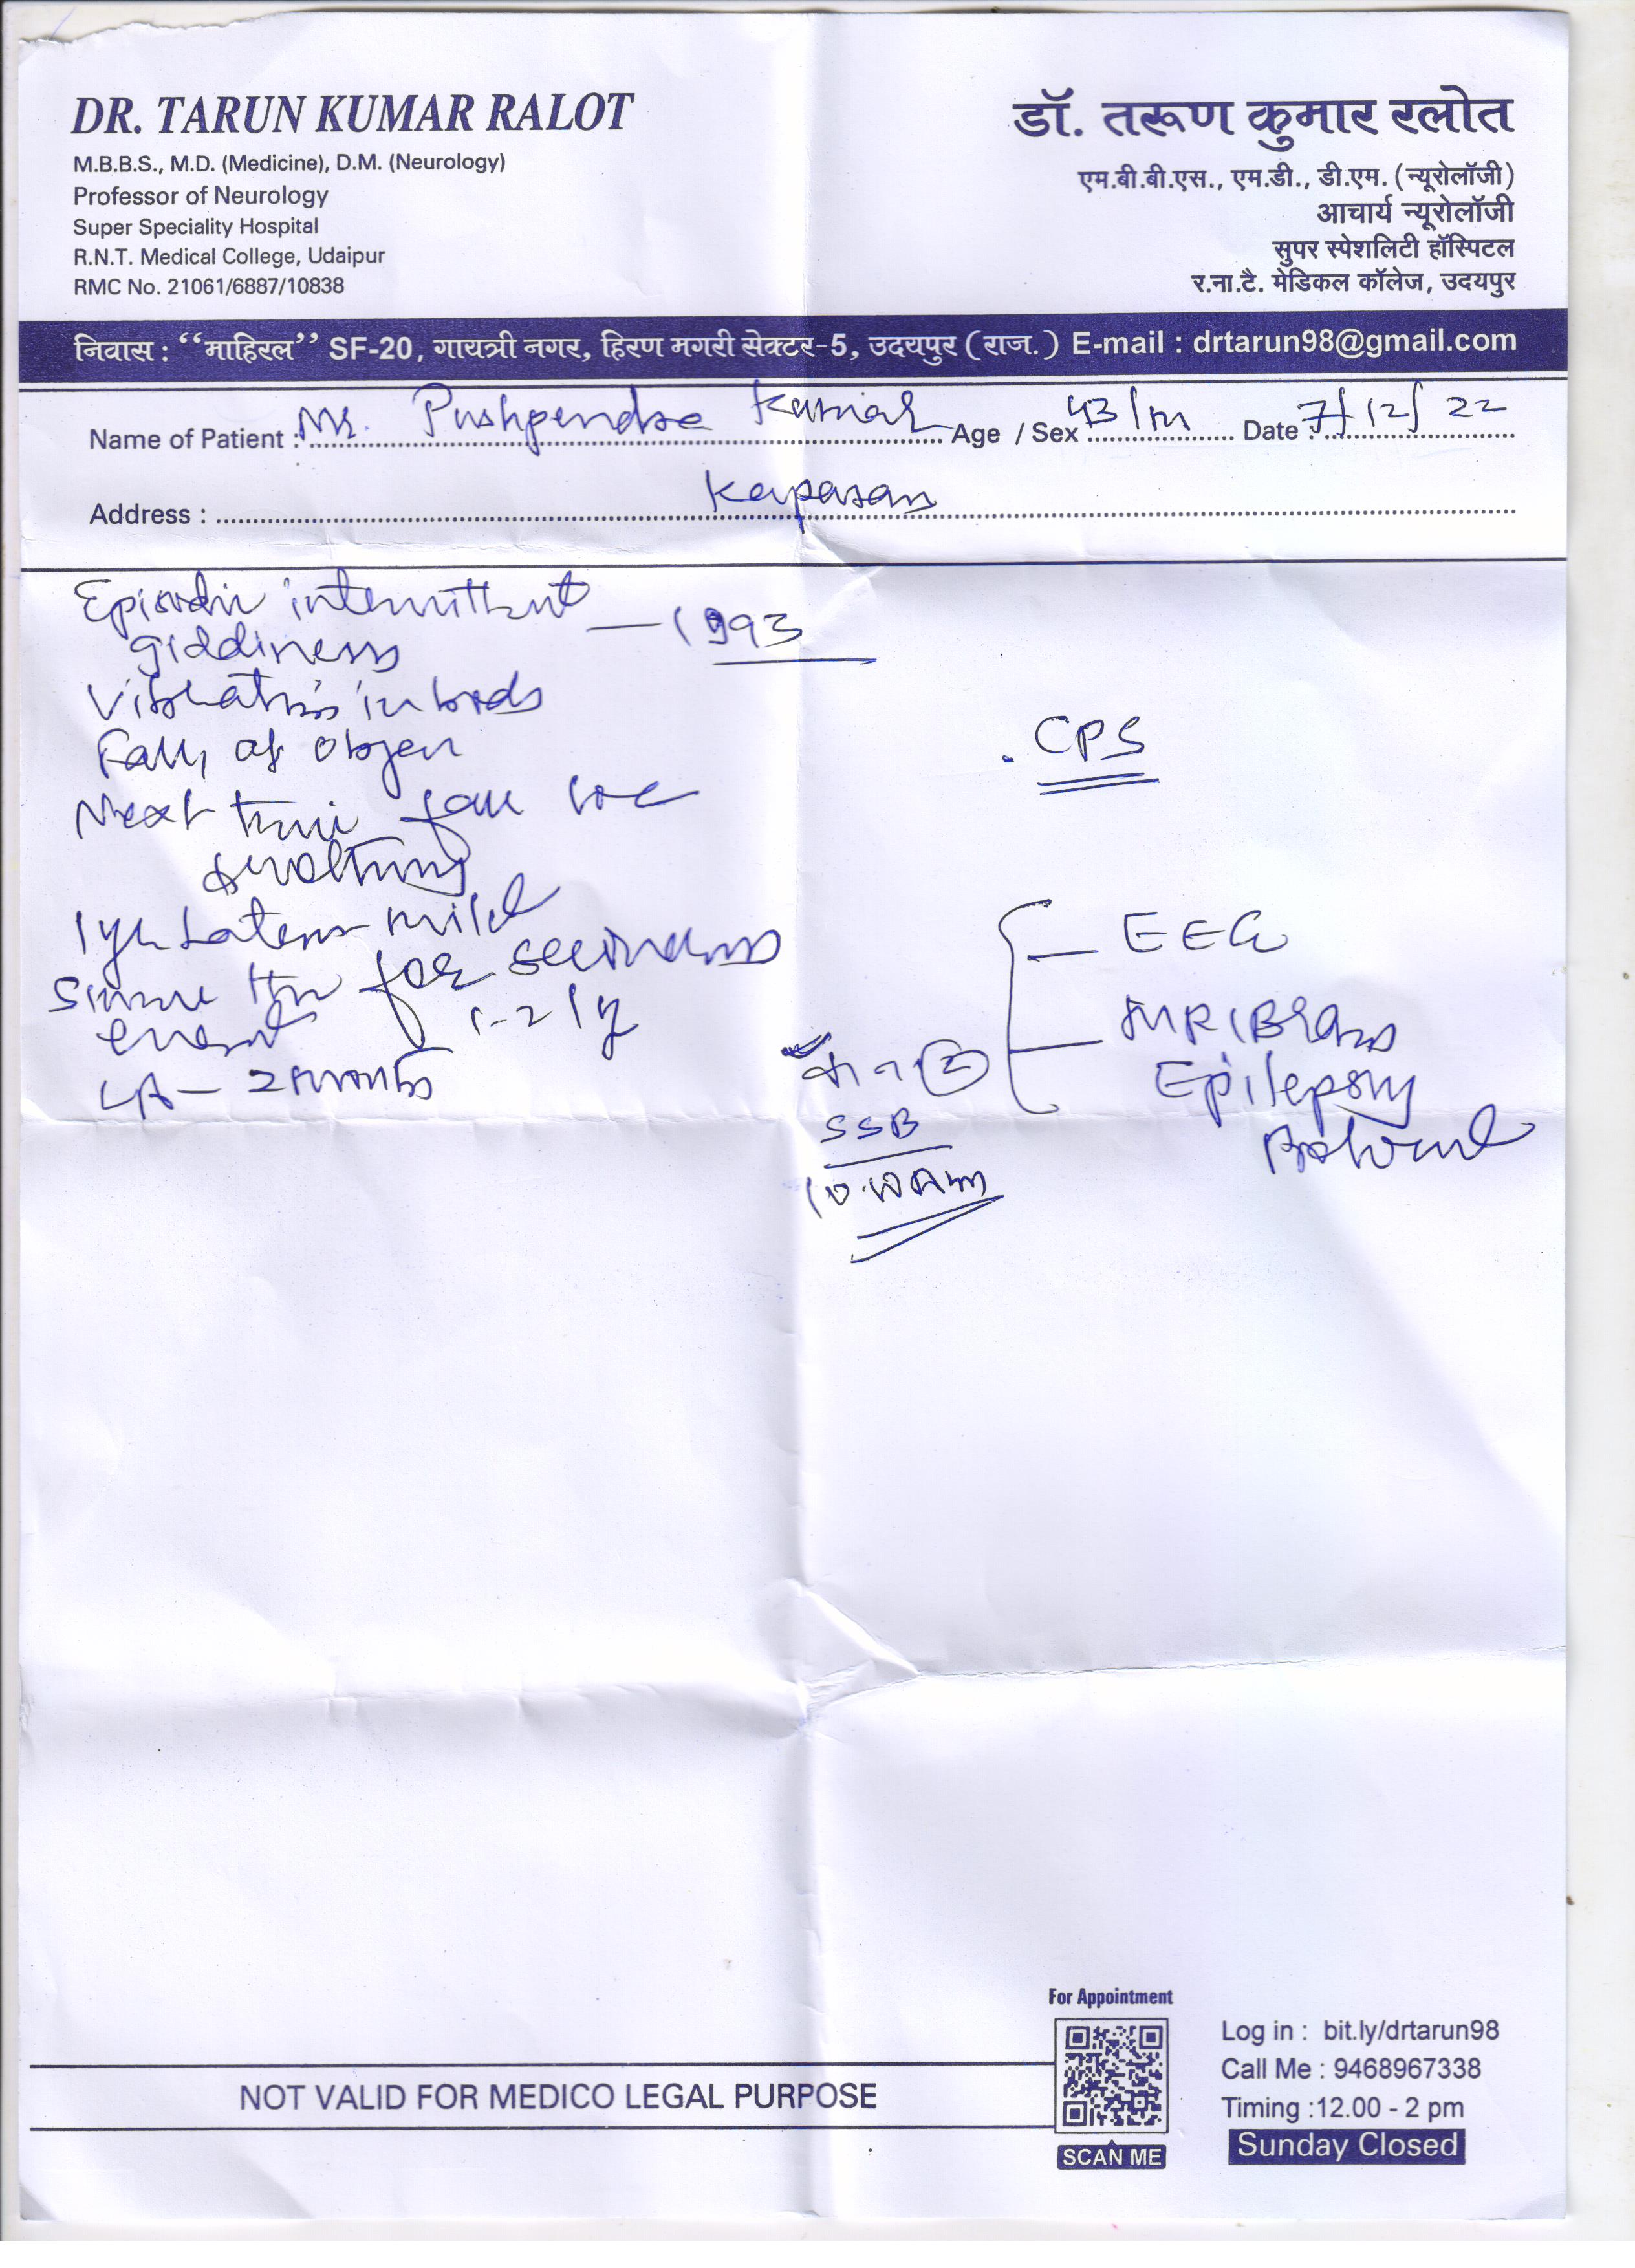 DR. TARUN KUMAR RALOT
M.B.B.S., M.D. (Medicine), D.M. (Neurology)
Professor of Neurology
Super Speciality Hospital
R.N.T. Medical College, Udaipur
RMC No. 21061/6887/10838
डॉ. तरूण कुमार रलोत
एम.बी.बी.एस., एम.डी., डी.एम. (न्यूरोलॉजी)
आचार्य न्यूरोलॉजी
सुपर स्पेशलिटी हॉस्पिटल
र.ना.टै. मेडिकल कॉलेज, उदयपुर
निवास : “माहिरल” SF-20, गायत्री नगर, हिरण मगरी सेक्टर-5, उदयपुर (राज.) E-mail : drtarun98@gmail.com
Name of Patient : Mr. Pushpendra Kumar Age / Sex 43/m Date : 7/12/22
Address : Kapasan
Episodic intermittent
giddiness — 1993
Vibrations in body
Fall of object
Next time fall LOC
1yr Later mild
for seconds
event 1-2/y
LA - 2 months
CPS
EEG
MRI Brain
Epilepsy
Protocol
SSB
NOT VALID FOR MEDICO LEGAL PURPOSE
For Appointment
SCAN ME
Log in : bit.ly/drtarun98
Call Me : 9468967338
Timing :12.00 - 2 pm
Sunday Closed